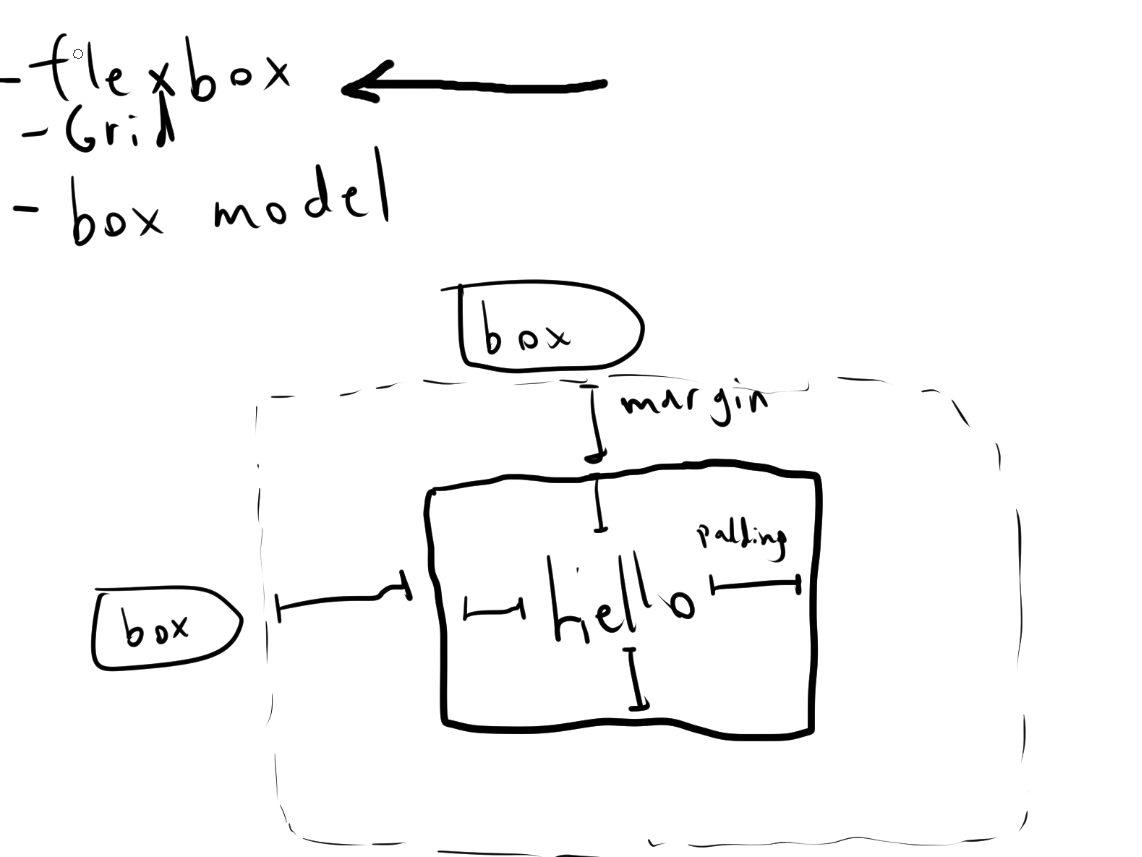 - flexbox
- Grid
- box model
box
margin
padding
hello
box